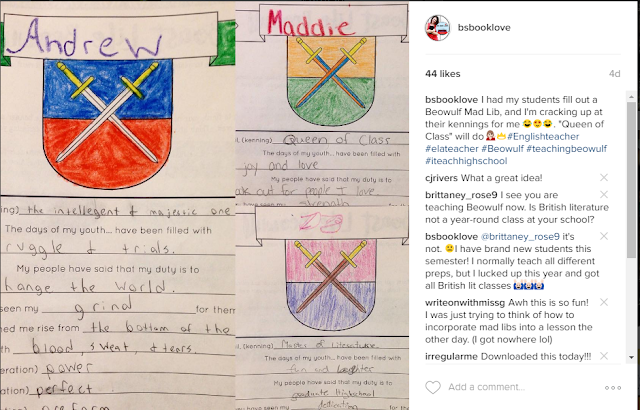 Andrew
ning) the intellegent & majestic one
The days of my youth... have been filled with
ruggle & trials.
My people have said that my duty is to
hange the world.
seen my grind for them
ned me rise from the bottom of the
th blood, sweat, & tears.
eration) power
ation) perfect
ation)
Maddie
I, (kenning) Queen of Class
The days of my youth... have been filled with
joy and love
My people have said that my duty is to
ok out for people I love
seen my strength
I, (kenning) Master of Literature
The days of my youth... have been filled with
fun and laughter
My people have said that my duty is to
graduate
bsbooklove
44 likes
4d
bsbooklove I had my students fill out a
Beowulf Mad Lib, and I'm cracking up at
their kennings for me 😂😍😂. "Queen of
Class" will do 💁👑 #Englishteacher
#elateacher #Beowulf #teachingbeowulf
#iteachhighschool
cjrivers What a great idea!
brittaney_rose9 I see you are
teaching Beowulf now. Is British literature
not a year-round class at your school?
bsbooklove @brittany_rose9 it's
not. 🙁 I have brand new students this
semester! I normally teach all different
preps, but I lucked up this year and got
all British lit classes 🙌🙌🙌
writeonwithmissg Awh this is so fun!
I was just trying to think of how to
incorporate mad libs into a lesson the
other day. (I got nowhere lol)
irregularme Downloaded this today!!!
Add a comment...